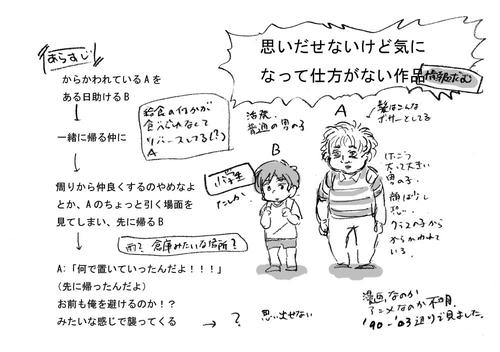 あらすじ
思いだせないけど気に
なって仕方がない作品
情報求む
からかわれているAを
ある日助けるB
給食の何かが
食べれなくて
リバースしてる(?)
A
一緒に帰る仲に
周りから仲良くするのやめなよ
とか、Aのちょっと引く場面を
見てしまい、先に帰るB
雨?倉庫みたいな場所?
A:「何で置いていったんだよ!!!」
(先に帰ったんだよ)
お前も俺を避けるのか!?
みたいな感じで襲ってくる
→ ?
思い出せない
普通の男の子
B
小学生
たしか
A
髪はこんな
ボサーとしてる
けっこう
太って大きい
男の子.
クラスの子から
からかわれて
いる.
漫画なのか
アニメなのか不明.
'90-'03辺りで見ました.